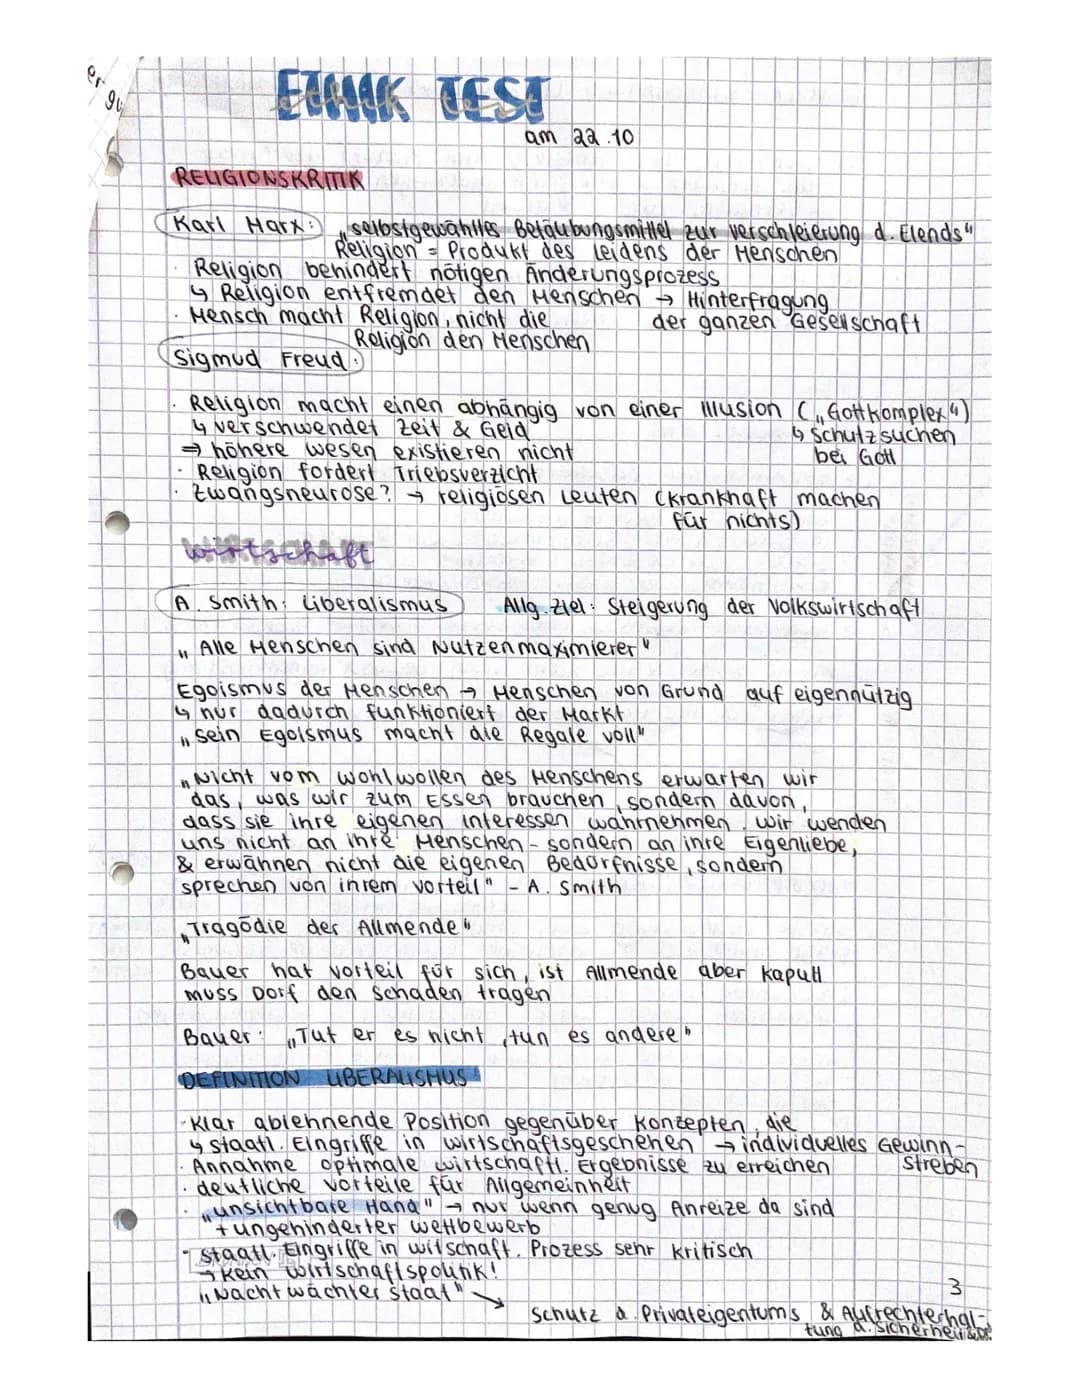 er
gu
ETHIK TEST
ethik test
am 22.10
RELIGIONSKRITIK
Karl Marx: „selbstgewähltes Betäubungsmittel zur Verschleierung d. Elends"
Religion = Produkt des Leidens der Menschen
· Religion behindert nötigen Änderungsprozess
↳ Religion entfremdet den Menschen → Hinterfragung
der ganzen Gesellschaft
· Mensch macht Religion, nicht die
Religion den Menschen
Sigmud Freud:
· Religion macht einen abhängig von einer Illusion („Gottkomplex")
↳ Schutz suchen
bei Gott
↳ verschwendet Zeit & Geld
⇒ höhere Wesen existieren nicht
· Religion fordert Triebsverzicht
· Zwangsneurose? → religiösen Leuten (krankhaft machen
für nichts)
Wirtschaft
A. Smith: Liberalismus Allg. Ziel: Steigerung der Volkswirtschaft
„Alle Menschen sind Nutzenmaximierer"
Egoismus der Menschen → Menschen von Grund auf eigennützig
↳ nur dadurch funktioniert der Markt
„Sein Egoismus macht die Regale voll"
„Nicht vom Wohlwollen des Menschens erwarten wir
das, was wir zum Essen brauchen, sondern davon,
dass sie ihre eigenen Interessen wahrnehmen. Wir wenden
uns nicht an ihre Menschen- sondern an ihre Eigenliebe,
& erwähnen nicht die eigenen Bedürfnisse, sondern
sprechen von ihrem Vorteil" - A. Smith
„Tragödie der Allmende"
Bauer hat Vorteil für sich, ist Allmende aber kaputt
muss Dorf den Schaden tragen
Bauer: „Tut er es nicht, tun es andere"
DEFINITION LIBERALISMUS
· Klar ablehnende Position gegenüber Konzepten, die
↳ staatl. Eingriffe in Wirtschaftsgeschehen → individuelles Gewinn-
streben
· Annahme optimale wirtschaftl. Ergebnisse zu erreichen
· deutliche Vorteile für Allgemeinheit
· „unsichtbare Hand" → nur wenn genug Anreize da sind
+ ungehinderter Wettbewerb
· staatl. Eingriffe in witschaft. Prozess sehr kritisch
→ kein Wirtschaftspolitik!
„Nachtwächter staat" ↘
Schutz d. Privateigentums & Aufrechterhal-
tung d. Sicherheit &
3